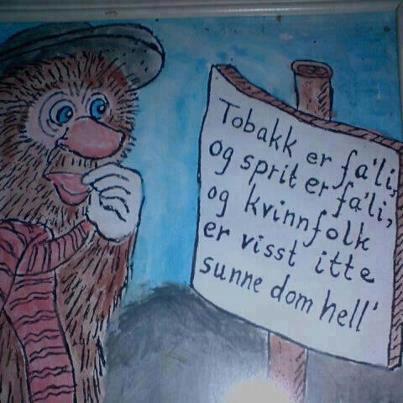 Tobakk er fa'li,
og sprit er fa'li,
og kvinnfolk
er visst itte
sunne dom hell'